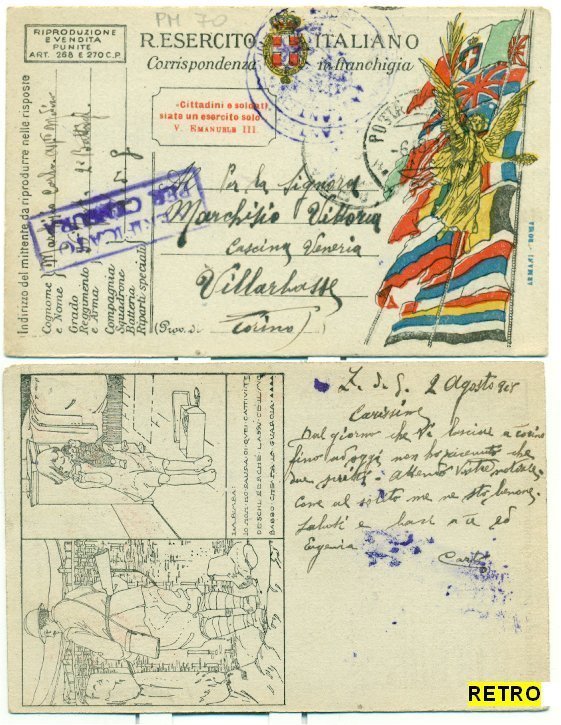 PM 70
RIPRODUZIONE
E VENDITA
PUNITE
ART. 268 E 270 C.P.
R. ESERCITO ITALIANO
Corrispondenza in franchigia
«Cittadini e soldati,
siate un esercito solo»
V. EMANUELE III.
POSTA
VERIFICATA
PER CENSURA
Indirizzo del mittente da riprodurre nelle risposte
Cognome
e Nome
Grado
Reggimento
e Arma
Compagnia
Squadrone
Batteria
Riparti speciali
Per la Signora
Marchisio Vittoria
Cascina Veneria
Villarbasse
(Prov. di Torino)
ARMANI - ROMA
LA BIMBA:
IO NON HO PAURA DI QUEI CATTIVI TE-
DESCHI, PERCHÈ LASSÙ C'È IL MIO
BABBO CHE FA LA GUARDIA.
Z. d. G. 2 Agosto 918
Carissime
Dal giorno che vi lasciai a Torino
fino ad oggi non ho ricevuto che
due scritti. Attendo vostre notizie.
Come al solito me ne sto benone.
Saluti e baci a te ed
Eugenia
Carlo
RETRO